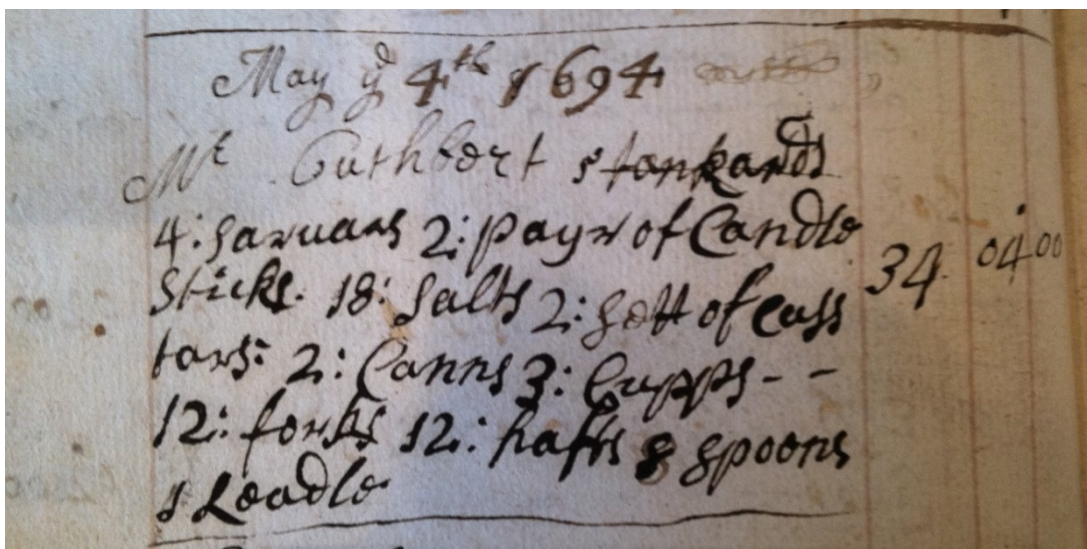 May ye 4th 1694
Mr Cuthbert 5 tankards
4: Saruars 2: payr of Candle
Sticks. 18: Salts 2: Sett of Cass
tars: 2: Canns 3: Cupps - -
12: forks 12: hafts 8 Spoons
1 Leadle
34 04 00